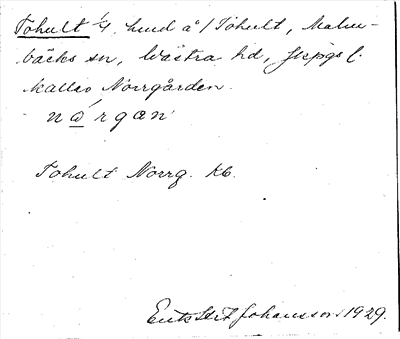 Tohult 1/4 hmd å 1 Tohult, Malm-
bäcks sn, Västra hd, Jkpgs l.
kallas Norrgården.
nά̲rgαn
Tohult Norrg. Kb.
Johansson 1929.